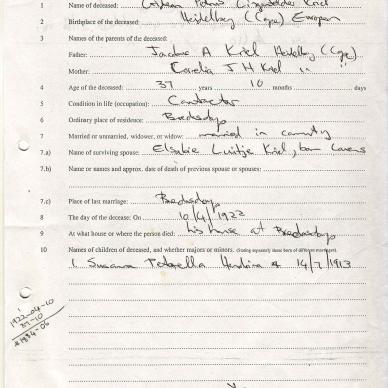 1 Name of deceased: Kriel
2 Birthplace of the deceased: Heidelberg (Cape) European
3 Names of the parents of the deceased:
Father: Jacobus A Kriel Heidelberg (Cape)
Mother: Cornelia J H Kriel " "
4 Age of the deceased: 37 years 10 months days
5 Condition in life (occupation): Contractor
6 Ordinary place of residence: Bredasdorp
7 Married or unmarried, widower, or widow: married in community
7.a) Name of surviving spouse: Elsabie Kriel, born
7.b) Name or names and approx. date of death of previous spouse or spouses:
7.c) Place of last marriage: Bredasdorp
8 The day of the decease: On 10/4/1922
9 At what house or where the person died: his house at Bredasdorp
10 Names of children of deceased, and whether majors or minors. (Stating separately those born of different marriages).
1 Susanna Petronella Hendrina * 14/7/1913
1922-04-10
37-10
*1884-06